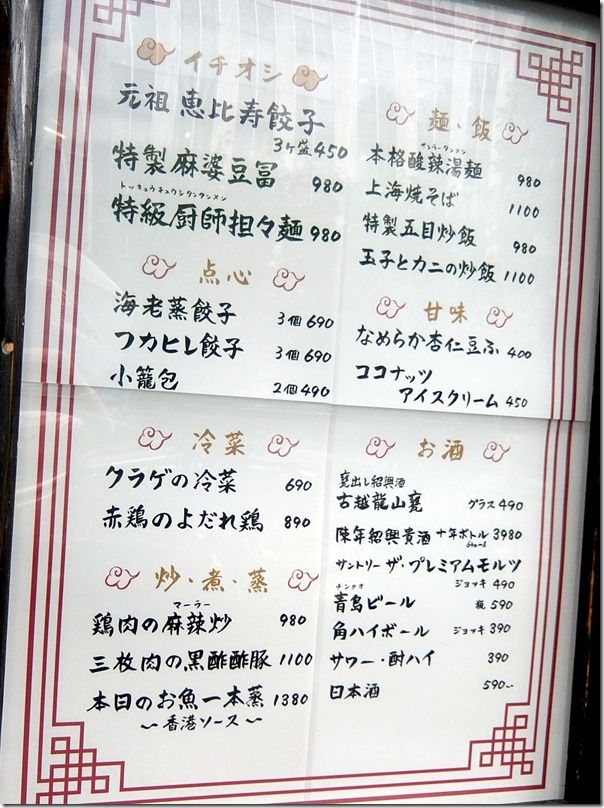 イチオシ
元祖 恵比寿餃子
3ヶ盛 450
特製麻婆豆冨 980
トッキュウチュウシタンタンメン
特級厨師担々麺 980
点心
海老蒸餃子 3個 690
フカヒレ餃子 3個 690
小籠包 2個 490
冷菜
クラゲの冷菜 690
赤鶏のよだれ鶏 890
炒・煮・蒸
マーラー
鶏肉の麻辣炒 980
三枚肉の黒酢酢豚 1100
本日のお魚一本蒸 1380
〜香港ソース〜
麺・飯
サンラータンメン
本格酸辣湯麺 980
上海焼そば 1100
特製五目炒飯 980
玉子とカニの炒飯 1100
甘味
なめらか杏仁豆ふ 400
ココナッツ
アイスクリーム 450
お酒
甕出し紹興酒
古越龍山甕 グラス 490
陳年紹興貴酒 十年ボトル 3980
サントリー ザ・プレミアムモルツ
ジョッキ 490
チンタオ
青島ビール 瓶 590
角ハイボール ジョッキ 390
サワー・酎ハイ 390
日本酒 590〜